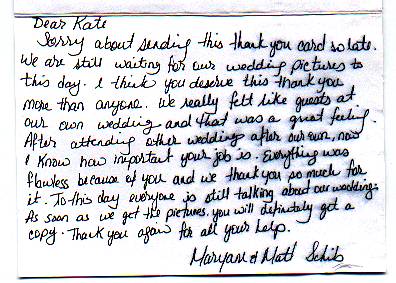 Dear Kate
Sorry about sending this thank you card so late.
We are still waiting for our wedding pictures to
this day. I think you deserve this thank you
more than anyone. We really felt like guests at
our own wedding and that was a great feeling.
After attending other weddings after our own, now
I know how important your job is. Everything was
flawless because of you and we thank you so much for
it. To this day everyone is still talking about our wedding.
As soon as we get the pictures, you will definitely get a
copy. Thank you again for all your help.
Maryann & Matt